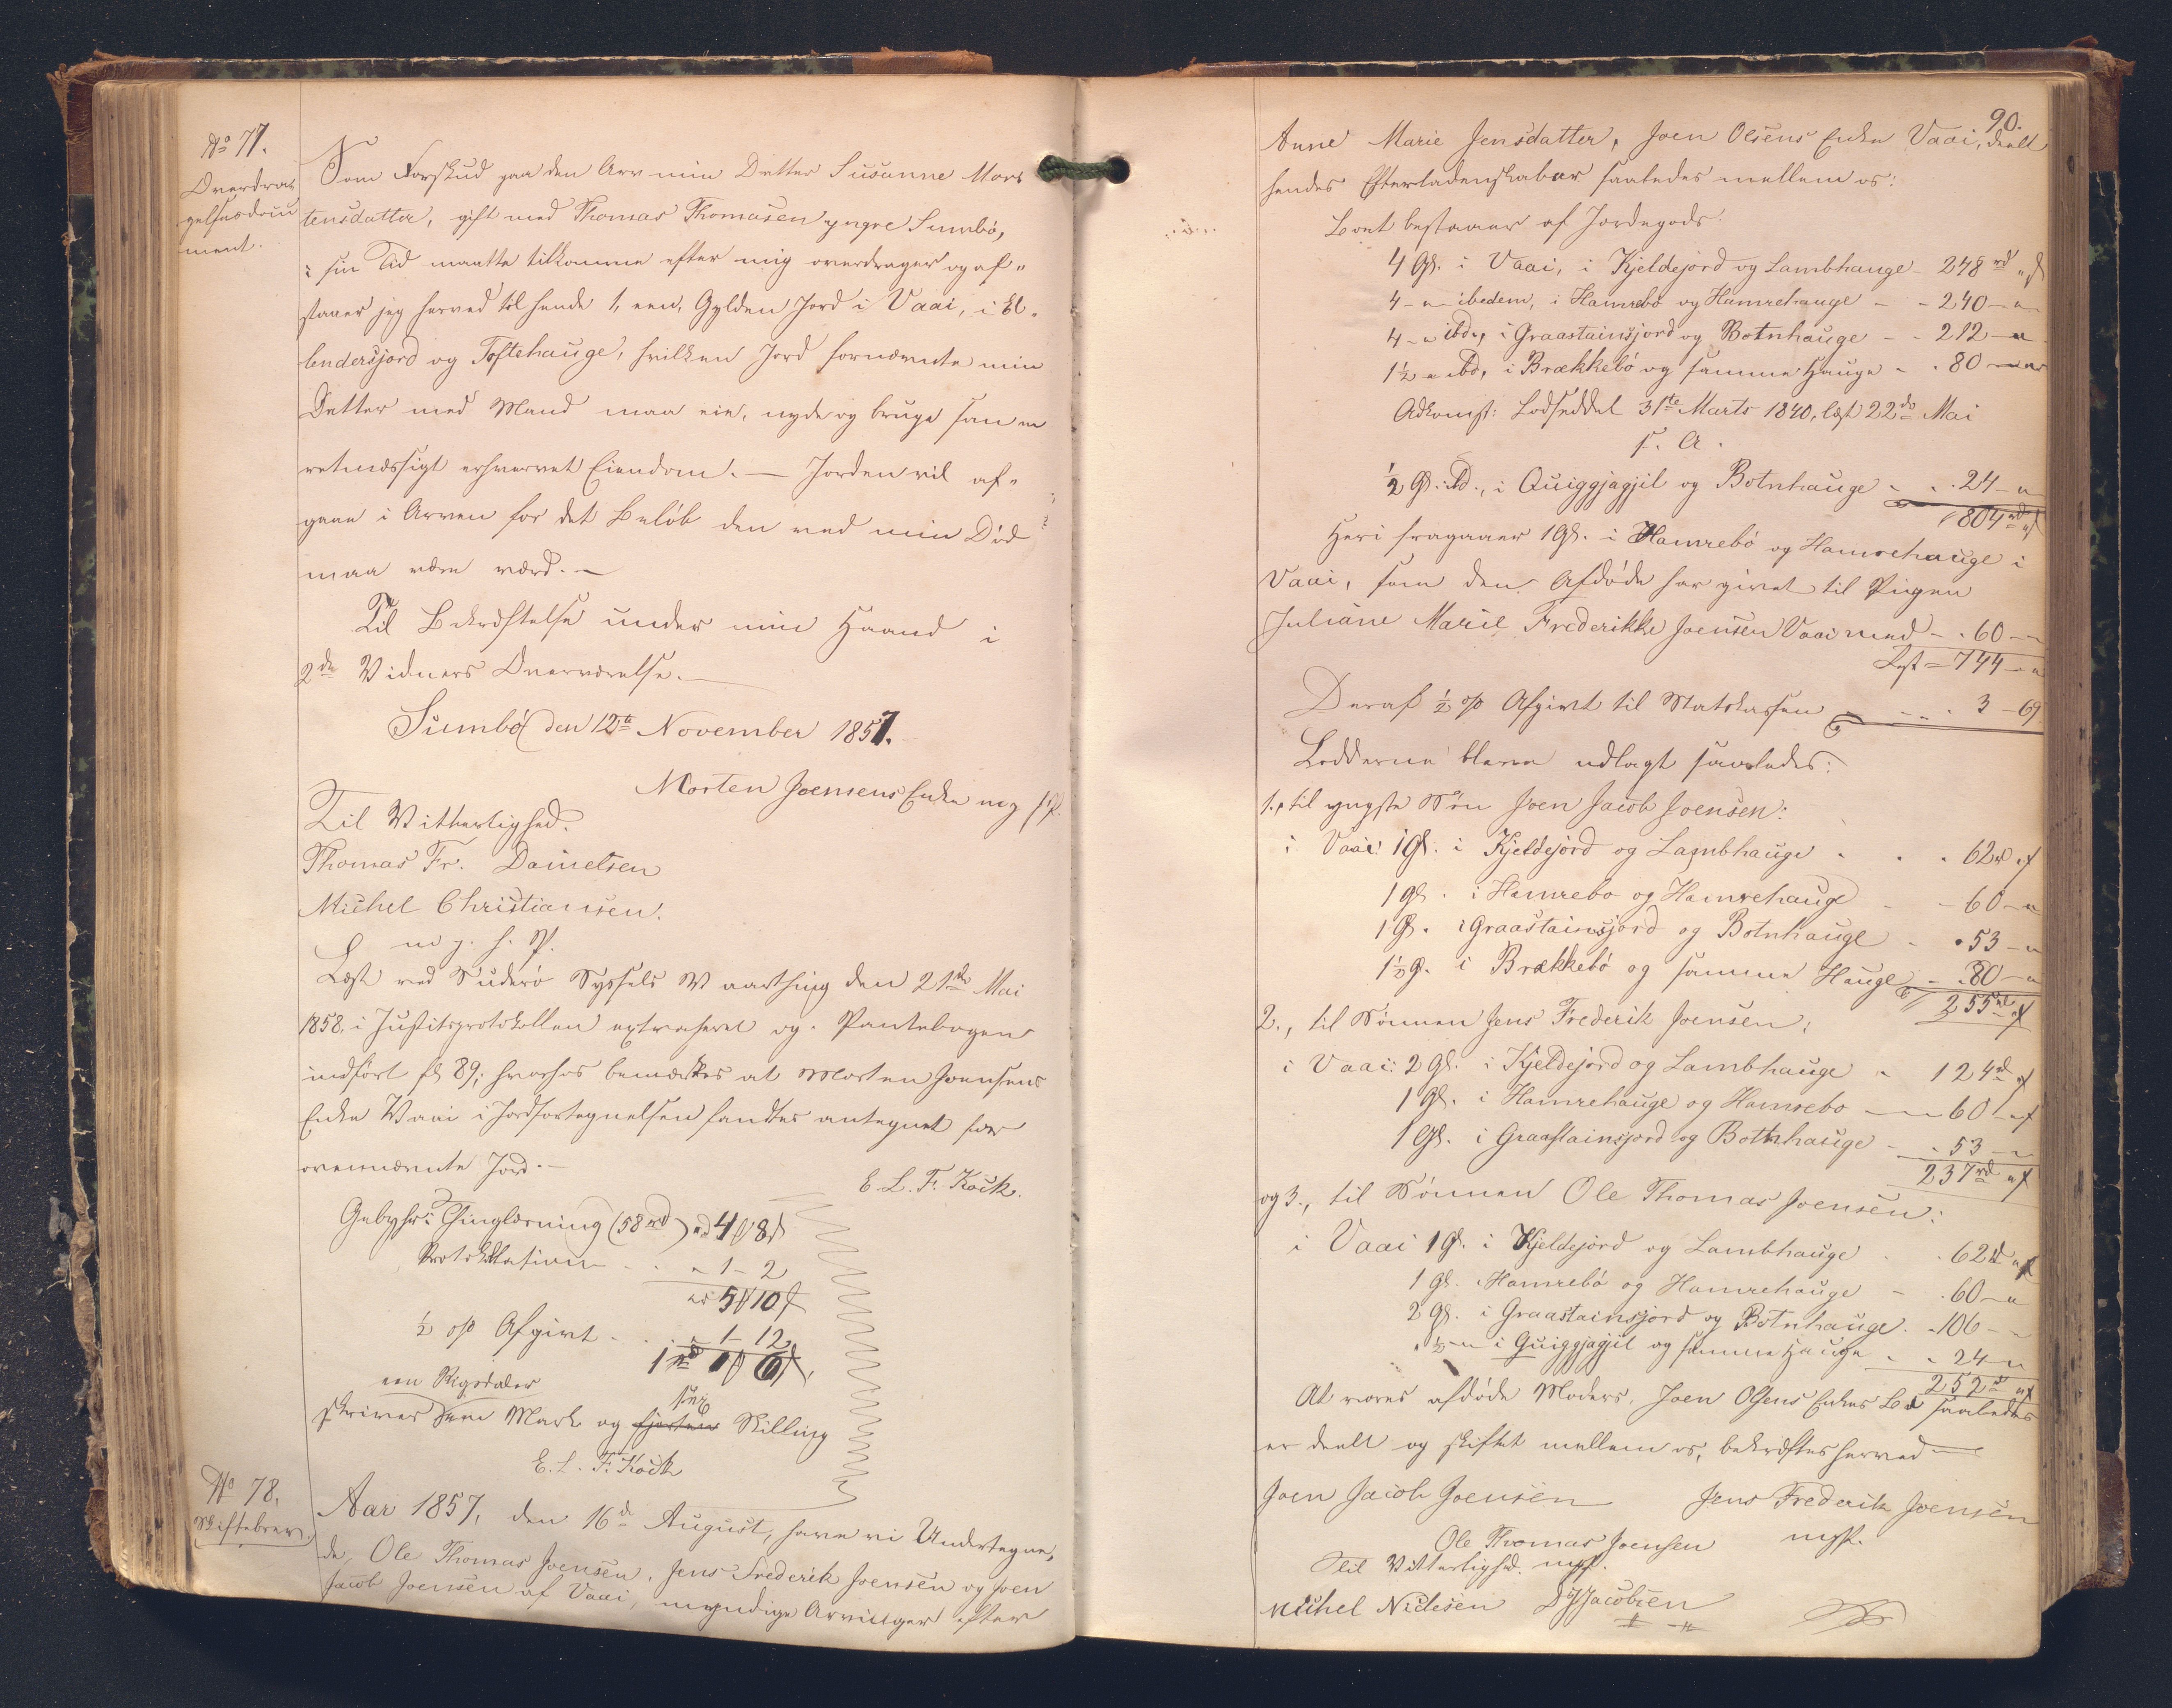 No 77.
Overdra-
gelsesdocu
ment.
Som Forskud paa den Arv min Datter Susanne Mor-
tensdatter, gift med Thomas Thomasen yngre Sumbø,
i sin Tid maatte tilkomme efter mig overdrager og af-
staaer jeg herved til hende 1, een, Gylden Jord i Vaai, i El-
lendersjord og Toftehauge, hvilken Jord fornævnte min
Datter med Mand maa eie, nyde og bruge som en
retmæssigt erhvervet Eiendom. — Jorden vil af-
gaae i Arven for det Beløb den ved min Død
maa være værd. —
Til Bekræftelse under min Haand i
2de Vidners Overværelse. —
Sumbø den 12te November 1857.
Morten Joensens Enke m. f. P.
Til Vitterlighed.
Thomas Fr. Danielsen
Michel Christiansen.
m. f. P.
Læst ved Suderø Syssels Vaarthing den 21de Mai
1858, i Justitsprotokollen extraheret og Pantebogen
indført fol 89; hvorhos bemærkes at Morten Joensens
Enke Vaai i Jordfortegnelsen fandtes antegnet for
ovennævnte Jord. —
E. L. F. Kock.
Gebyhr: Thinglæsning (58rd) „rd 4 ℳ 8 s
Protokollation - - „ - 1 - 2
„rd 5 ℳ 10 s
½ op Afgivt - - „ - 1 - 12
1rd 1 ℳ 6 s
een Rigsdaler
skriver een Mark og fjorten sex Skilling
E. L. F. Kock
No 78.
Skiftebrev.
Aar 1857, den 16de August, have vi Undertegne-
de, Ole Thomas Joensen, Jens Frederik Joensen og Joen
Jacob Joensen af Vaai, myndige Arvinger efter
90.
Anne Marie Jensdatter, Joen Olsens Enke Vaai, deelt
hendes Efterladenskaber saaledes mellem os:
Boet bestaaer af Jordegods:
4 Gl. i Vaai, i Kjeldejord og Lambhauge - 248rd „ s
4 - „ ibidem, i Hamrebø og Hamrehauge - - 240 - „
4 - „ ibd., i Graastainsjord og Botnhauge - - 212 - „
1½ „ ibd, i Brækkebø og samme Hauge - - 80 - „
Adkomst: Lodseddel 31te Marts 1840, læst 22de Mai
s. A.
½ Gl. ibd., i Quiggjagjil og Botnhauge - - 24 - „
804rd „ s
Heri fragaaer 1 Gl. i Hamrebø og Hamrehauge i
Vaai, som den Afdøde har givet til Pigen
Juliane Marie Frederikke Joensen Vaai med - - 60 - „
Rest = 744 - „
Deraf ½ op Afgivt til Statskassen - - - 3 - 69
Lodderne bleve udlagt saaledes:
1., til yngste Søn Joen Jacob Joensen:
i Vaai: 1 Gl. i Kjeldejord og Lambhauge - - - 62rd „ s
1 Gl. i Hamrebo og Hamrehauge - - 60 - „
1 Gl. i Graastainsjord og Botnhauge - - 53 - „
1½ Gl. i Brækkebø og samme Hauge - - 80 - „
255rd „ s
2., til Sønnen Jens Frederik Joensen:
i Vaai: 2 Gl. i Kjeldejord og Lambhauge - 124rd „ s
1 Gl. i Hamrehauge og Hamrebo - - 60 - „ s
1 Gl. i Graastainsjord og Botnhauge - - 53 - „
237rd „ s
og 3., til Sønnen Ole Thomas Joensen:
i Vaai 1 Gl. i Kjeldejord og Lambhauge - 62rd „ s
1 Gl. Hamrebø og Hamrehauge - - 60 - „
2 Gl. i Graastainsjord og Botnhauge - - 106 - „
„ ½ - „ i Quiggjagjil og samme Hauge - - 24 - „
252rd „ s
At vores afdøde Moders, Joen Olsens Enkes Bo saaledes
er deelt og skiftet mellem os, bekræftes herved —
Joen Jacob Joensen Jens Frederik Joensen
Ole Thomas Joensen mfP.
Til Vitterlighed. mfP.
Michel Niclesen D J Jacobsen